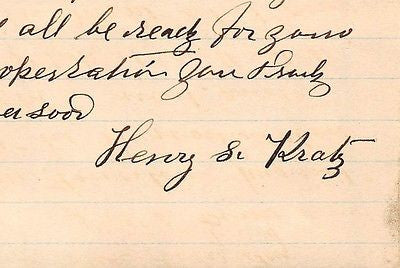 all be ready for your
operation your truly
Henry S. Kratz